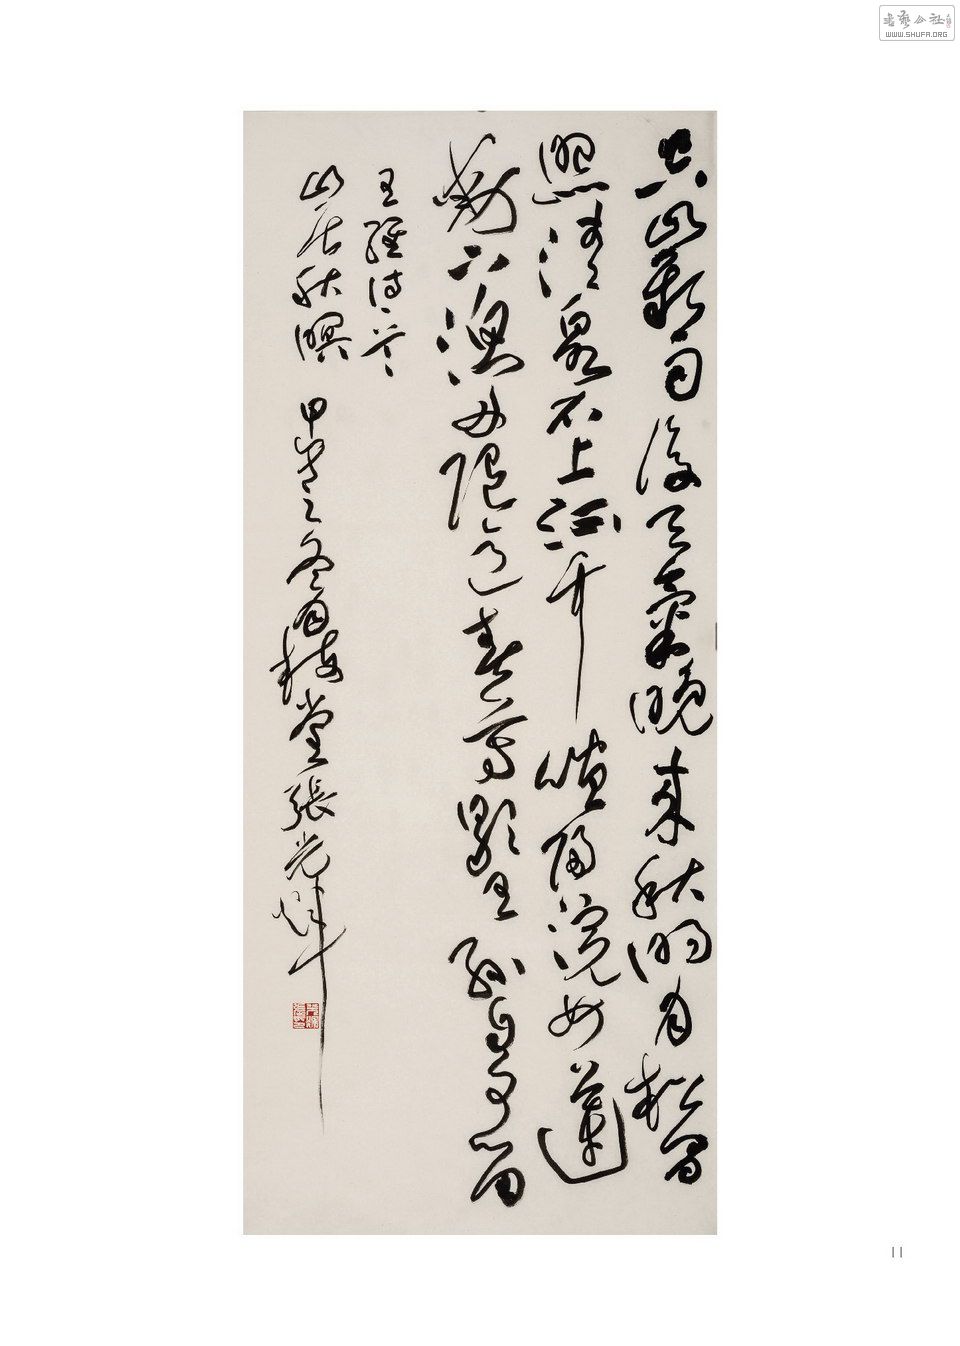 書藝公社
WWW.SHUFA.ORG
空山新雨後天氣晚來秋明月松間
照清泉石上流竹喧歸浣女蓮
動下漁舟隨意春芳歇王孫自可留
王維詩一首
山居秋暝 甲午之冬 梅堂張光
11